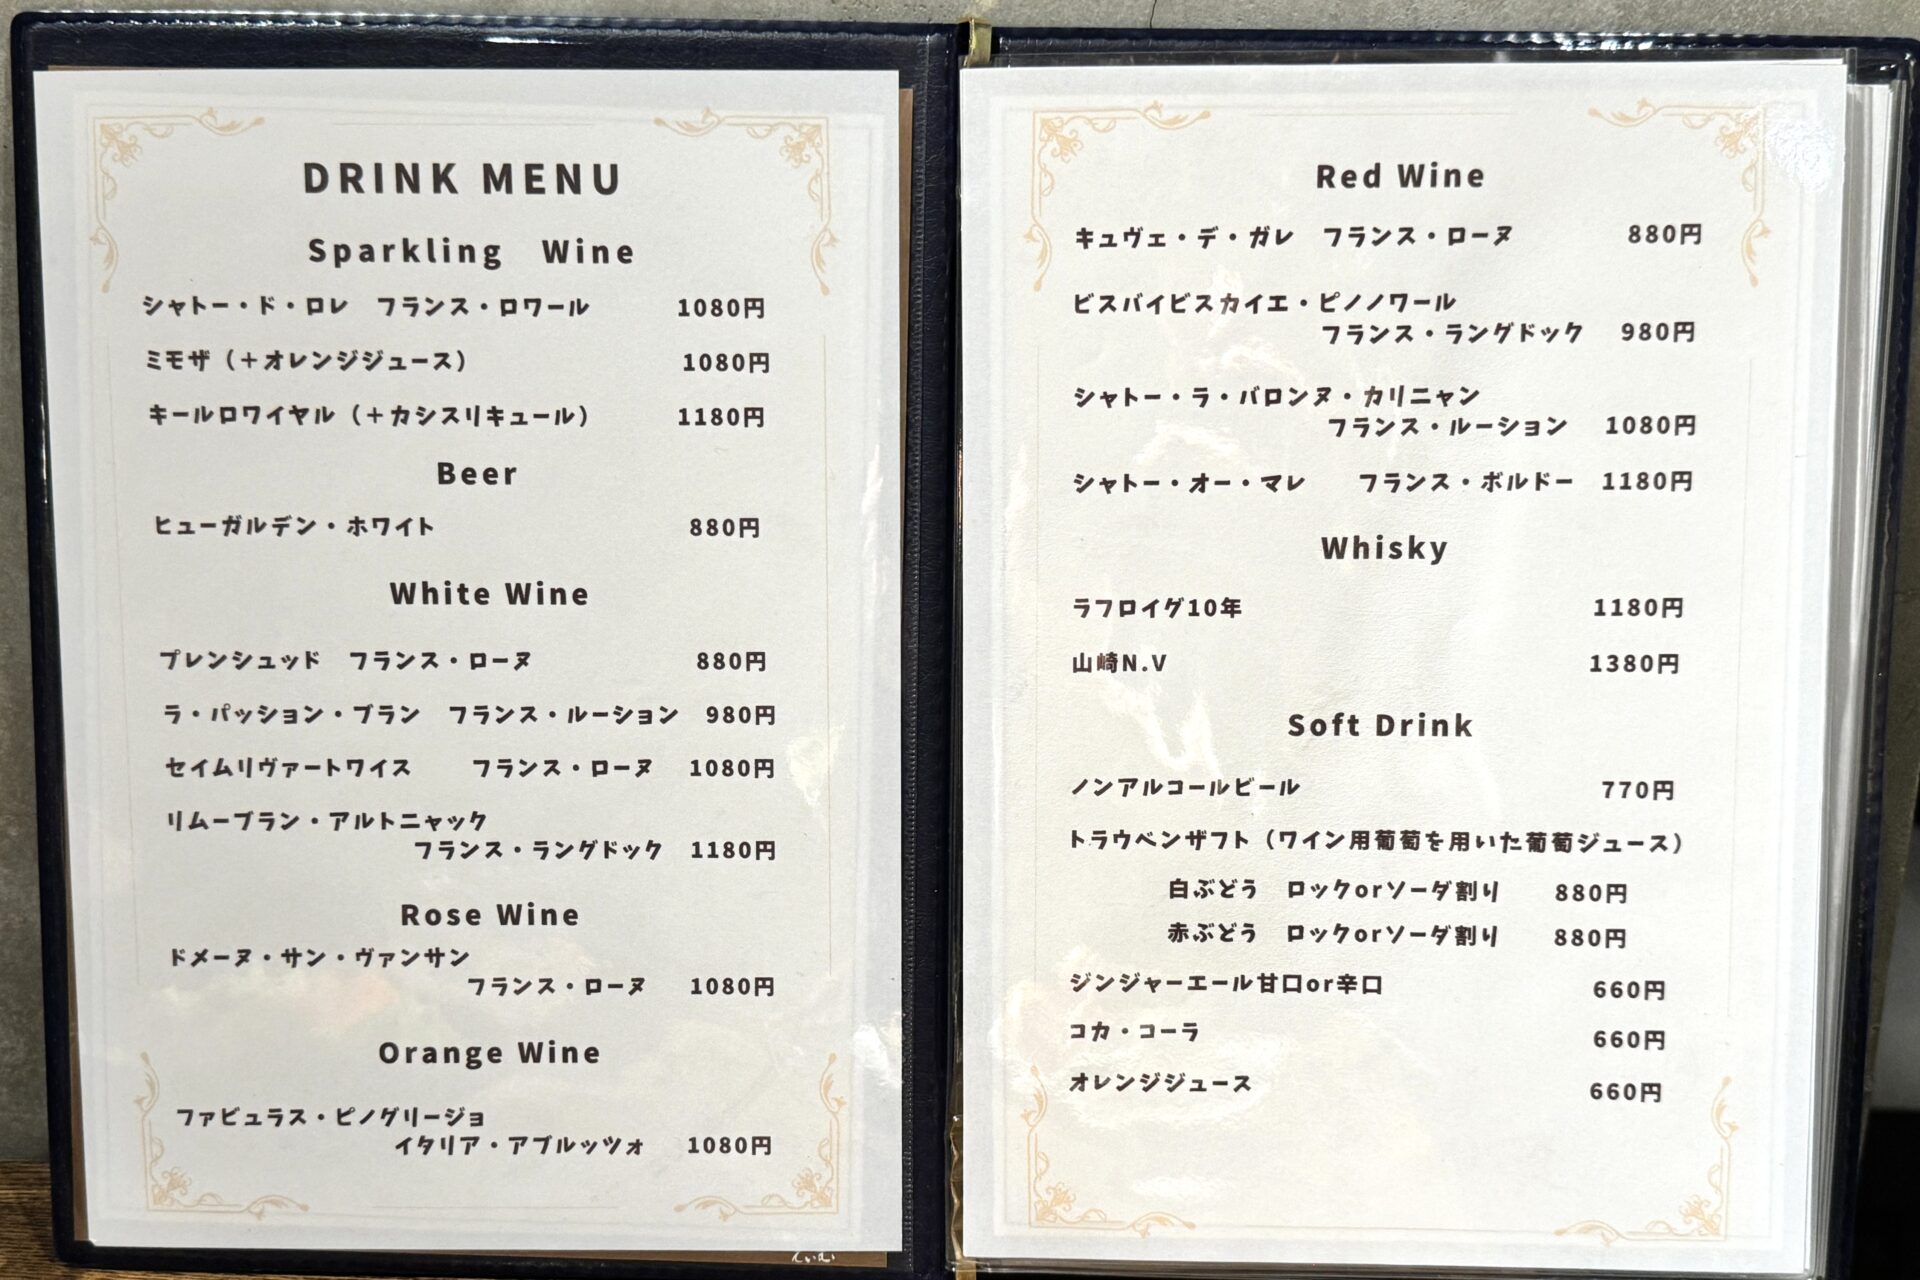 DRINK MENU
Sparkling Wine
シャトー・ド・ロレ フランス・ロワール 1080円
ミモザ（＋オレンジジュース） 1080円
キールロワイヤル（＋カシスリキュール） 1180円
Beer
ヒューガルデン・ホワイト 880円
White Wine
プレンシュッド フランス・ローヌ 880円
ラ・パッション・ブラン フランス・ルーション 980円
セイムリヴァートワイス フランス・ローヌ 1080円
リムーブラン・アルトニャック
フランス・ラングドック 1180円
Rose Wine
ドメーヌ・サン・ヴァンサン
フランス・ローヌ 1080円
Orange Wine
ファビュラス・ピノグリージョ
イタリア・アブルッツォ 1080円
Red Wine
キュヴェ・デ・ガレ フランス・ローヌ 880円
ビスバイビスカイエ・ピノノワール
フランス・ラングドック 980円
シャトー・ラ・バロンヌ・カリニャン
フランス・ルーション 1080円
シャトー・オー・マレ フランス・ボルドー 1180円
Whisky
ラフロイグ10年 1180円
山崎N.V 1380円
Soft Drink
ノンアルコールビール 770円
トラウベンザフト（ワイン用葡萄を用いた葡萄ジュース）
白ぶどう ロックorソーダ割り 880円
赤ぶどう ロックorソーダ割り 880円
ジンジャーエール甘口or辛口 660円
コカ・コーラ 660円
オレンジジュース 660円